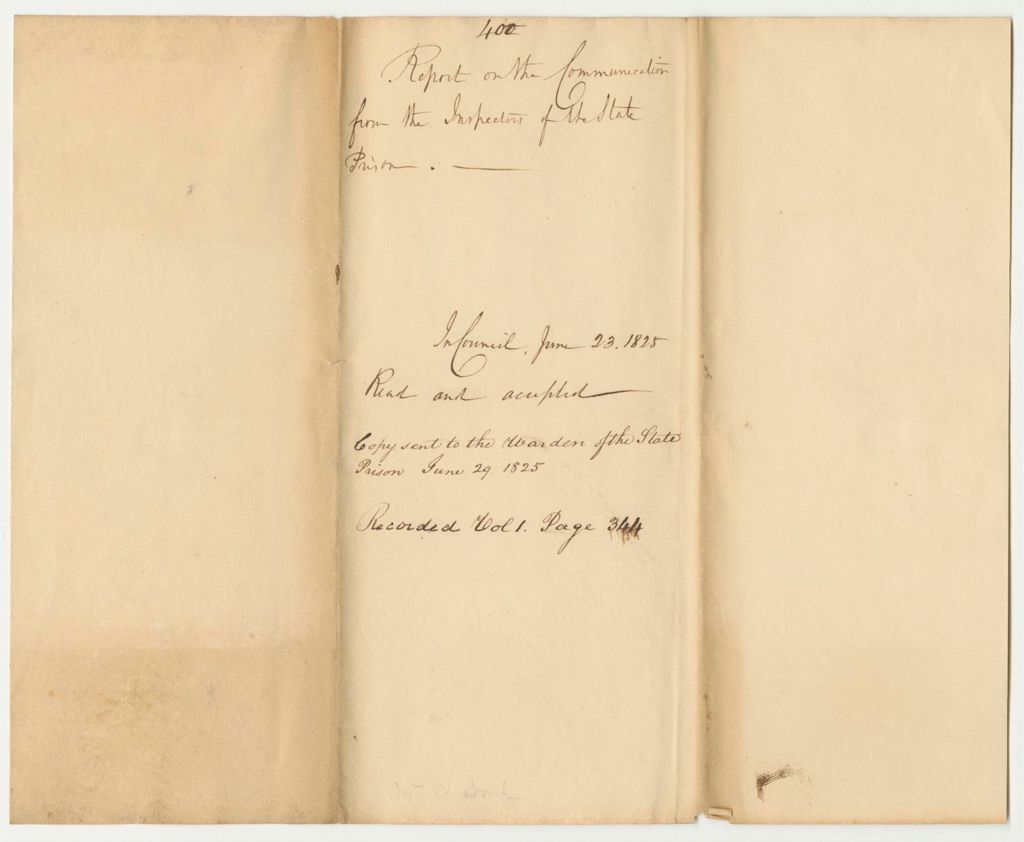 400
Report on the Communication
from the Inspectors of the State
Prison . —
In Council, June 23. 1825
Read and accepted
Copy sent to the Warden of the State
Prison June 29. 1825
Recorded Vol 1. Page 344